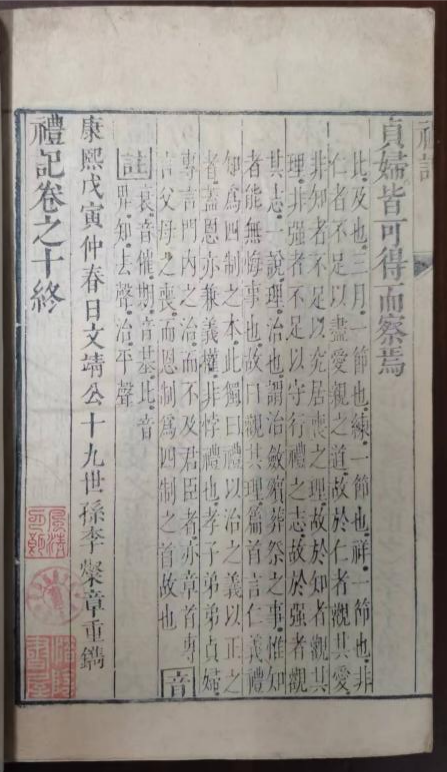 貞婦皆可得而察焉
比及也三月一節也練一節也祥一節也非
仁者不足以盡愛親之道故於仁者觀其愛
非知者不足以究居喪之理故於知者觀其
理非强者不足以守行禮之志故於强者觀
其志一說理治也謂治斂殯葬祭之事惟知
者能無悔事也故曰觀其理篇首言仁義禮
知爲四制之本此獨曰禮以治之義以正之
者蓋恩亦兼義權非悖禮也孝子弟弟貞婦
專言門內之治而不及君臣者亦章首專
言父母之喪而恩制爲四制之首故也 音
註 衰音催期音基比音
畀知去聲治平聲
康熙戊寅仲春日文靖公十九世孫李燦章重鐫
禮記卷之十終